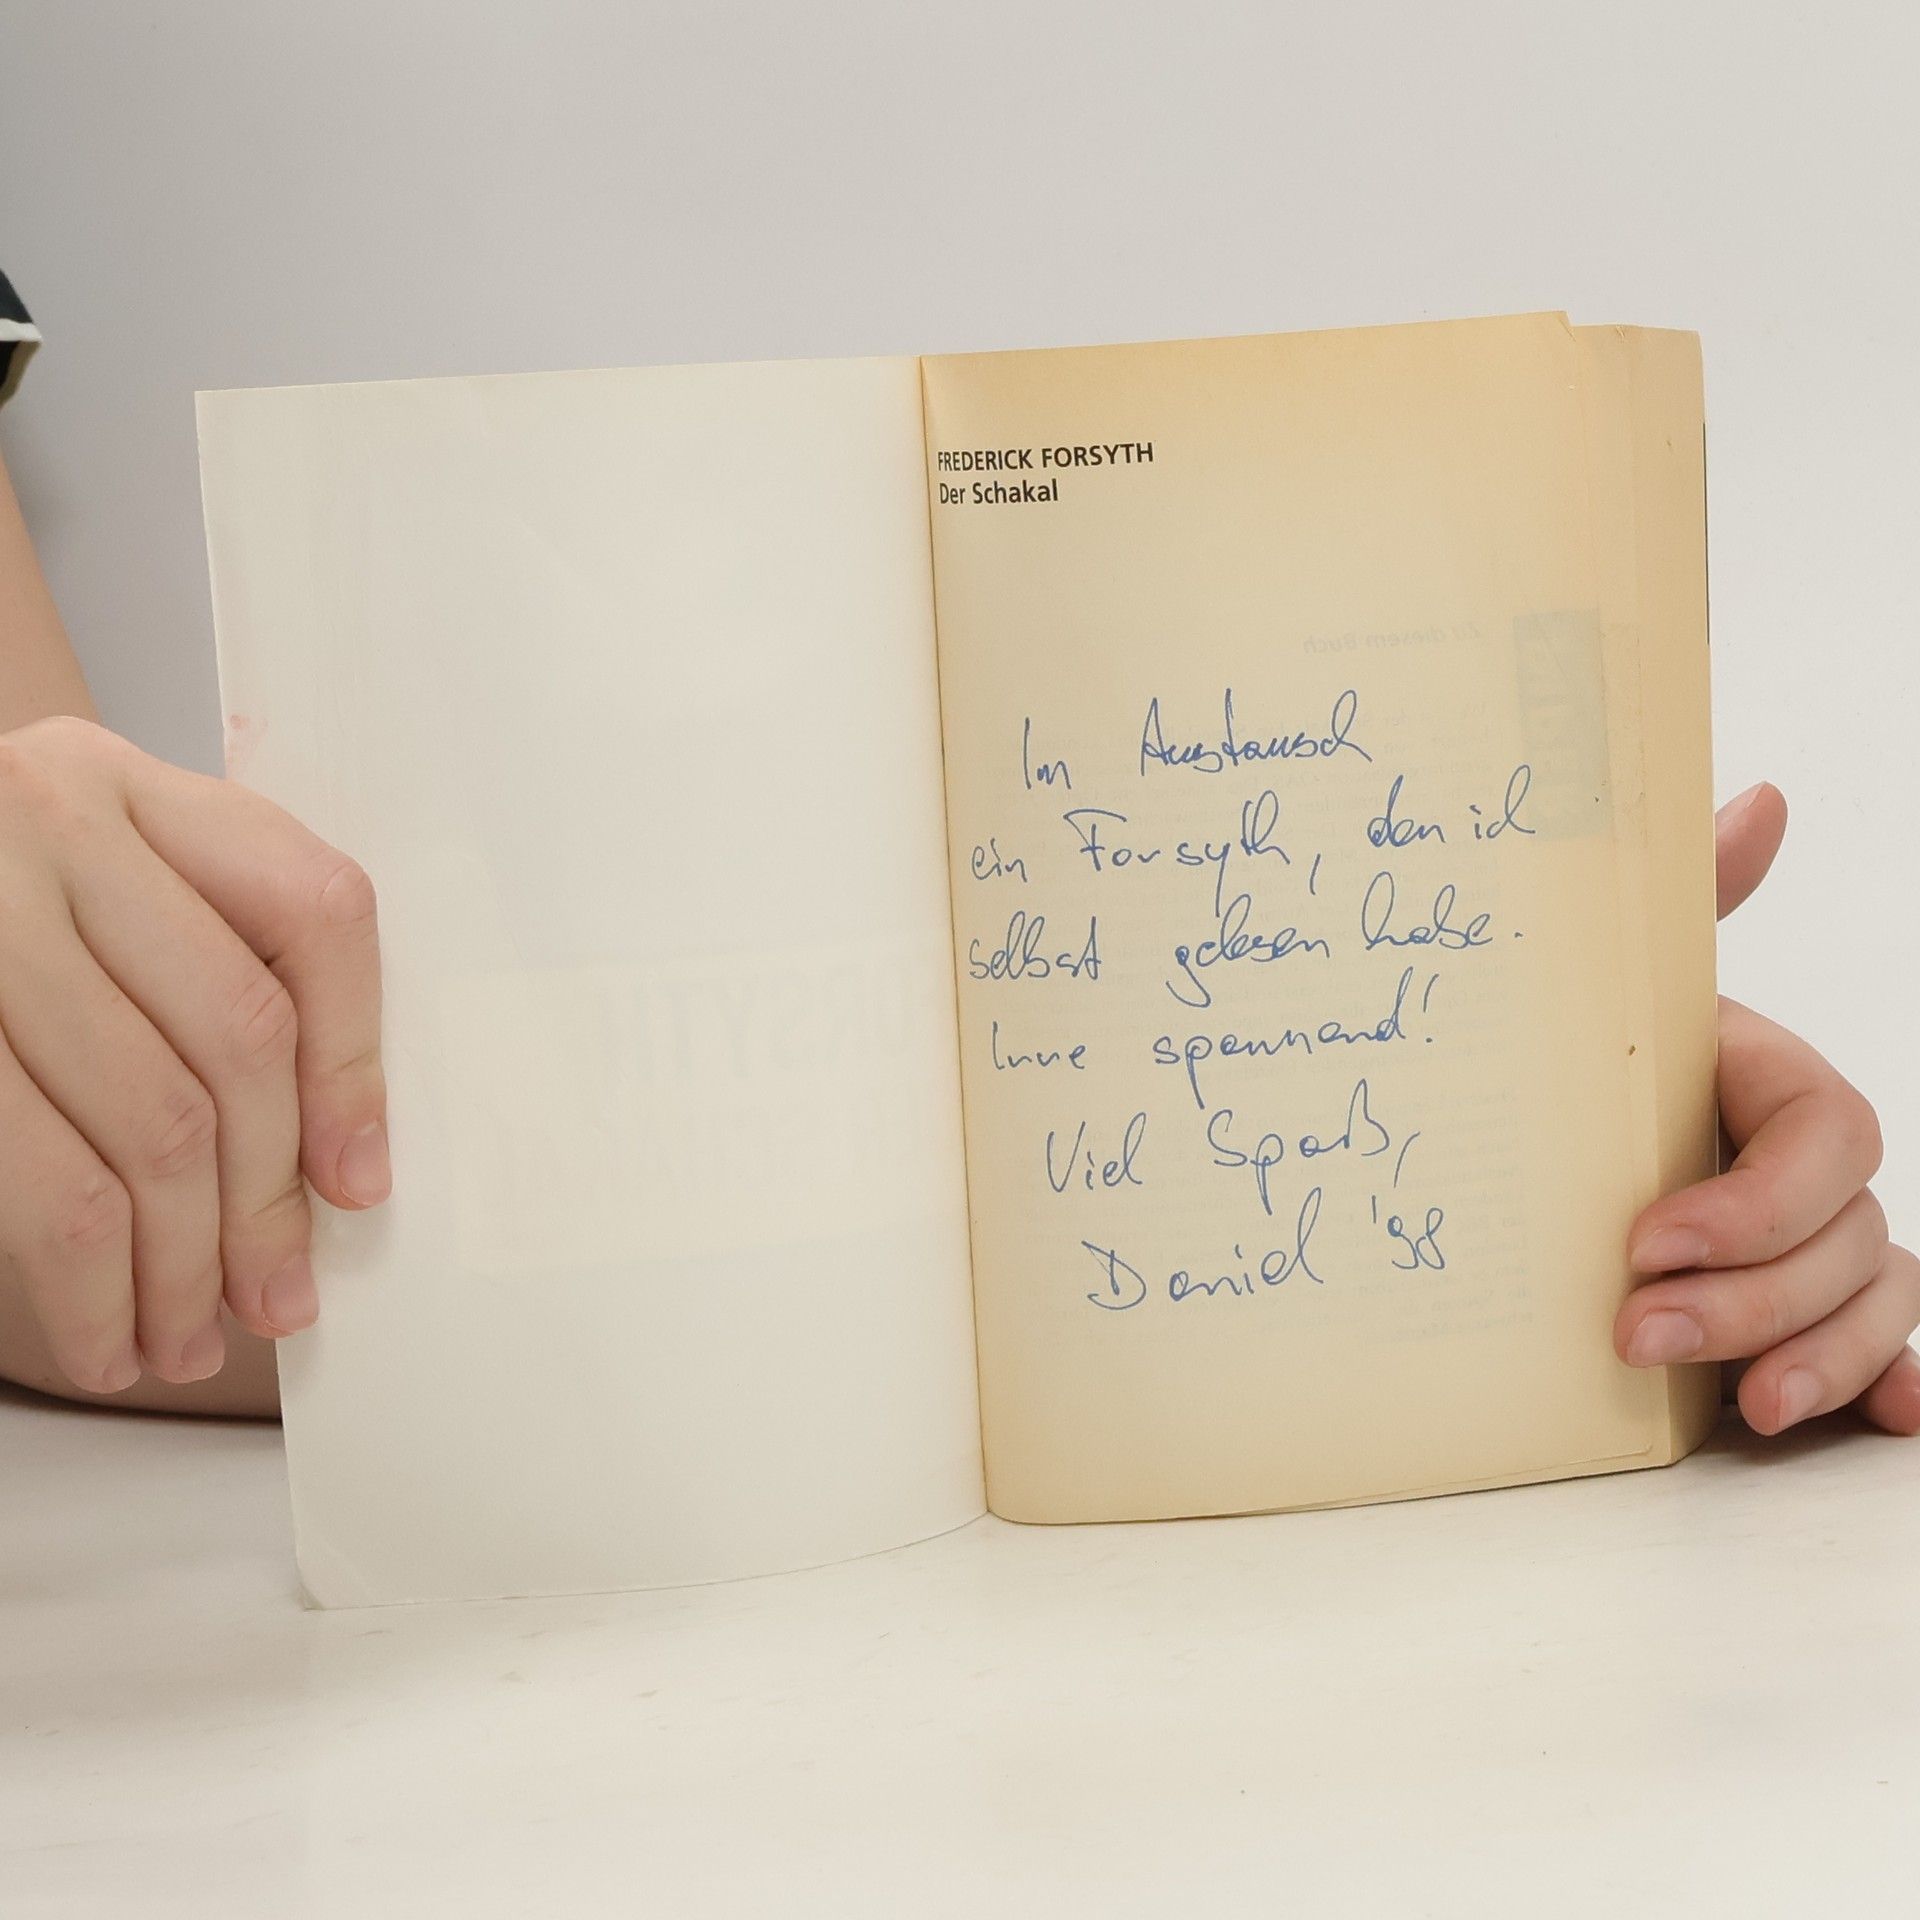 FREDERICK FORSYTH
Der Schakal
Zu diesem Buch
Im Austausch
ein Forsyth, den ich
selbst gelesen habe.
Irre spannend!
Viel Spaß,
Daniel '98